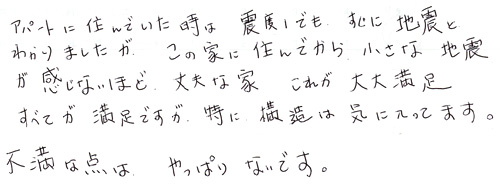 アパートに住んでいた時は 震度1でも すぐに 地震と
わかりましたが この家に住んでから 小さな 地震
が 感じないほど 丈夫な家 これが 大大満足
すべてが 満足ですが 特に 構造は 気に入ってます。
不満な点は やっぱり ないです。